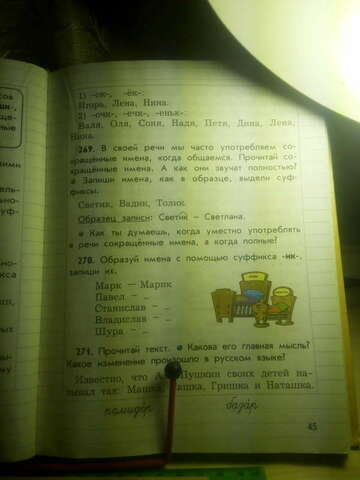 1) –ок–, –ёк–:
Игорь, Лена, Нина.
2) –очк–, –ечк–, –еньк–:
Валя, Оля, Соня, Надя, Петя, Дина, Лена,
Нина.
269. В своей речи мы часто употребляем со-
кращённые имена, когда общаемся. Прочитай со-
кращённые имена. А как они звучат полностью?
• Запиши имена, как в образце, выдели суф-
фиксы.
Светик, Вадик, Толик.
Образец записи: Светик – Светлана.
• Как ты думаешь, когда уместно употреблять
в речи сокращённые имена, а когда полные?
270. Образуй имена с помощью суффикса -ик-,
запиши их.
Марк — Марик
Павел – ..
Станислав – ..
Владислав – ..
Шура – ..
271. Прочитай текст. • Какова его главная мысль?
Какое изменение произошло в русском языке?
Известно, что А. Пушкин своих детей на-
зывал так: Машка, Сашка, Гришка и Наташка.
помидор базар
45